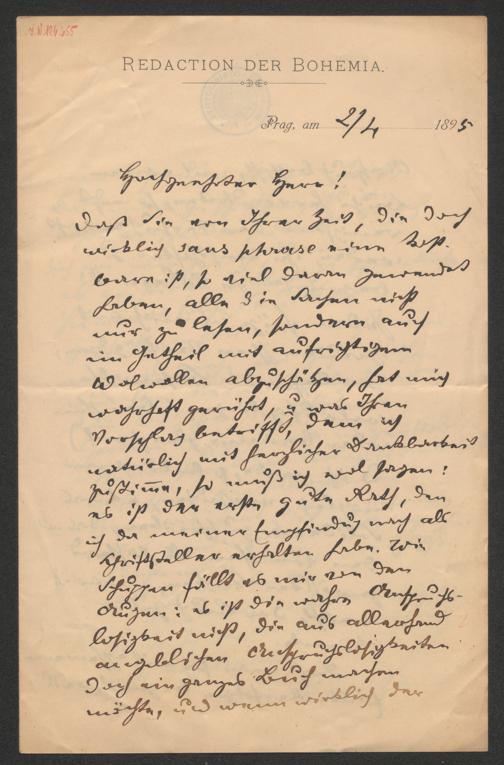 J.N. 124.355
REDACTION DER BOHEMIA.
Prag, am 2/4 1895
Hochgeehrter Herr!
Daß Sie von Ihrer Zeit, die doch
wirklich sans phrase eine kost-
bare ist, so viel daran gewendet
haben, alle die Sachen nicht
nur zu lesen, sondern auch
ein Urtheil mit aufrichtigem
Wolwollen abzuschätzen, hat mich
wahrhaft gerührt, u was Ihren
Vorschlag betrifft, dem ich
natürlich mit herzlicher Dankbarkeit
zustimme, so muß ich wol sagen:
es ist der erste gute Rath, den
ich da meiner Empfindung nach als
Schriftsteller erhalten habe. Wie
Schuppen fällt es mir von den
Augen: es ist die wahre Anspruchs-
losigkeit nicht, die aus allerhand
angeblichen Anspruchslosigkeiten
doch ein ganzes Buch machen
möchte, und wenn wirklich der